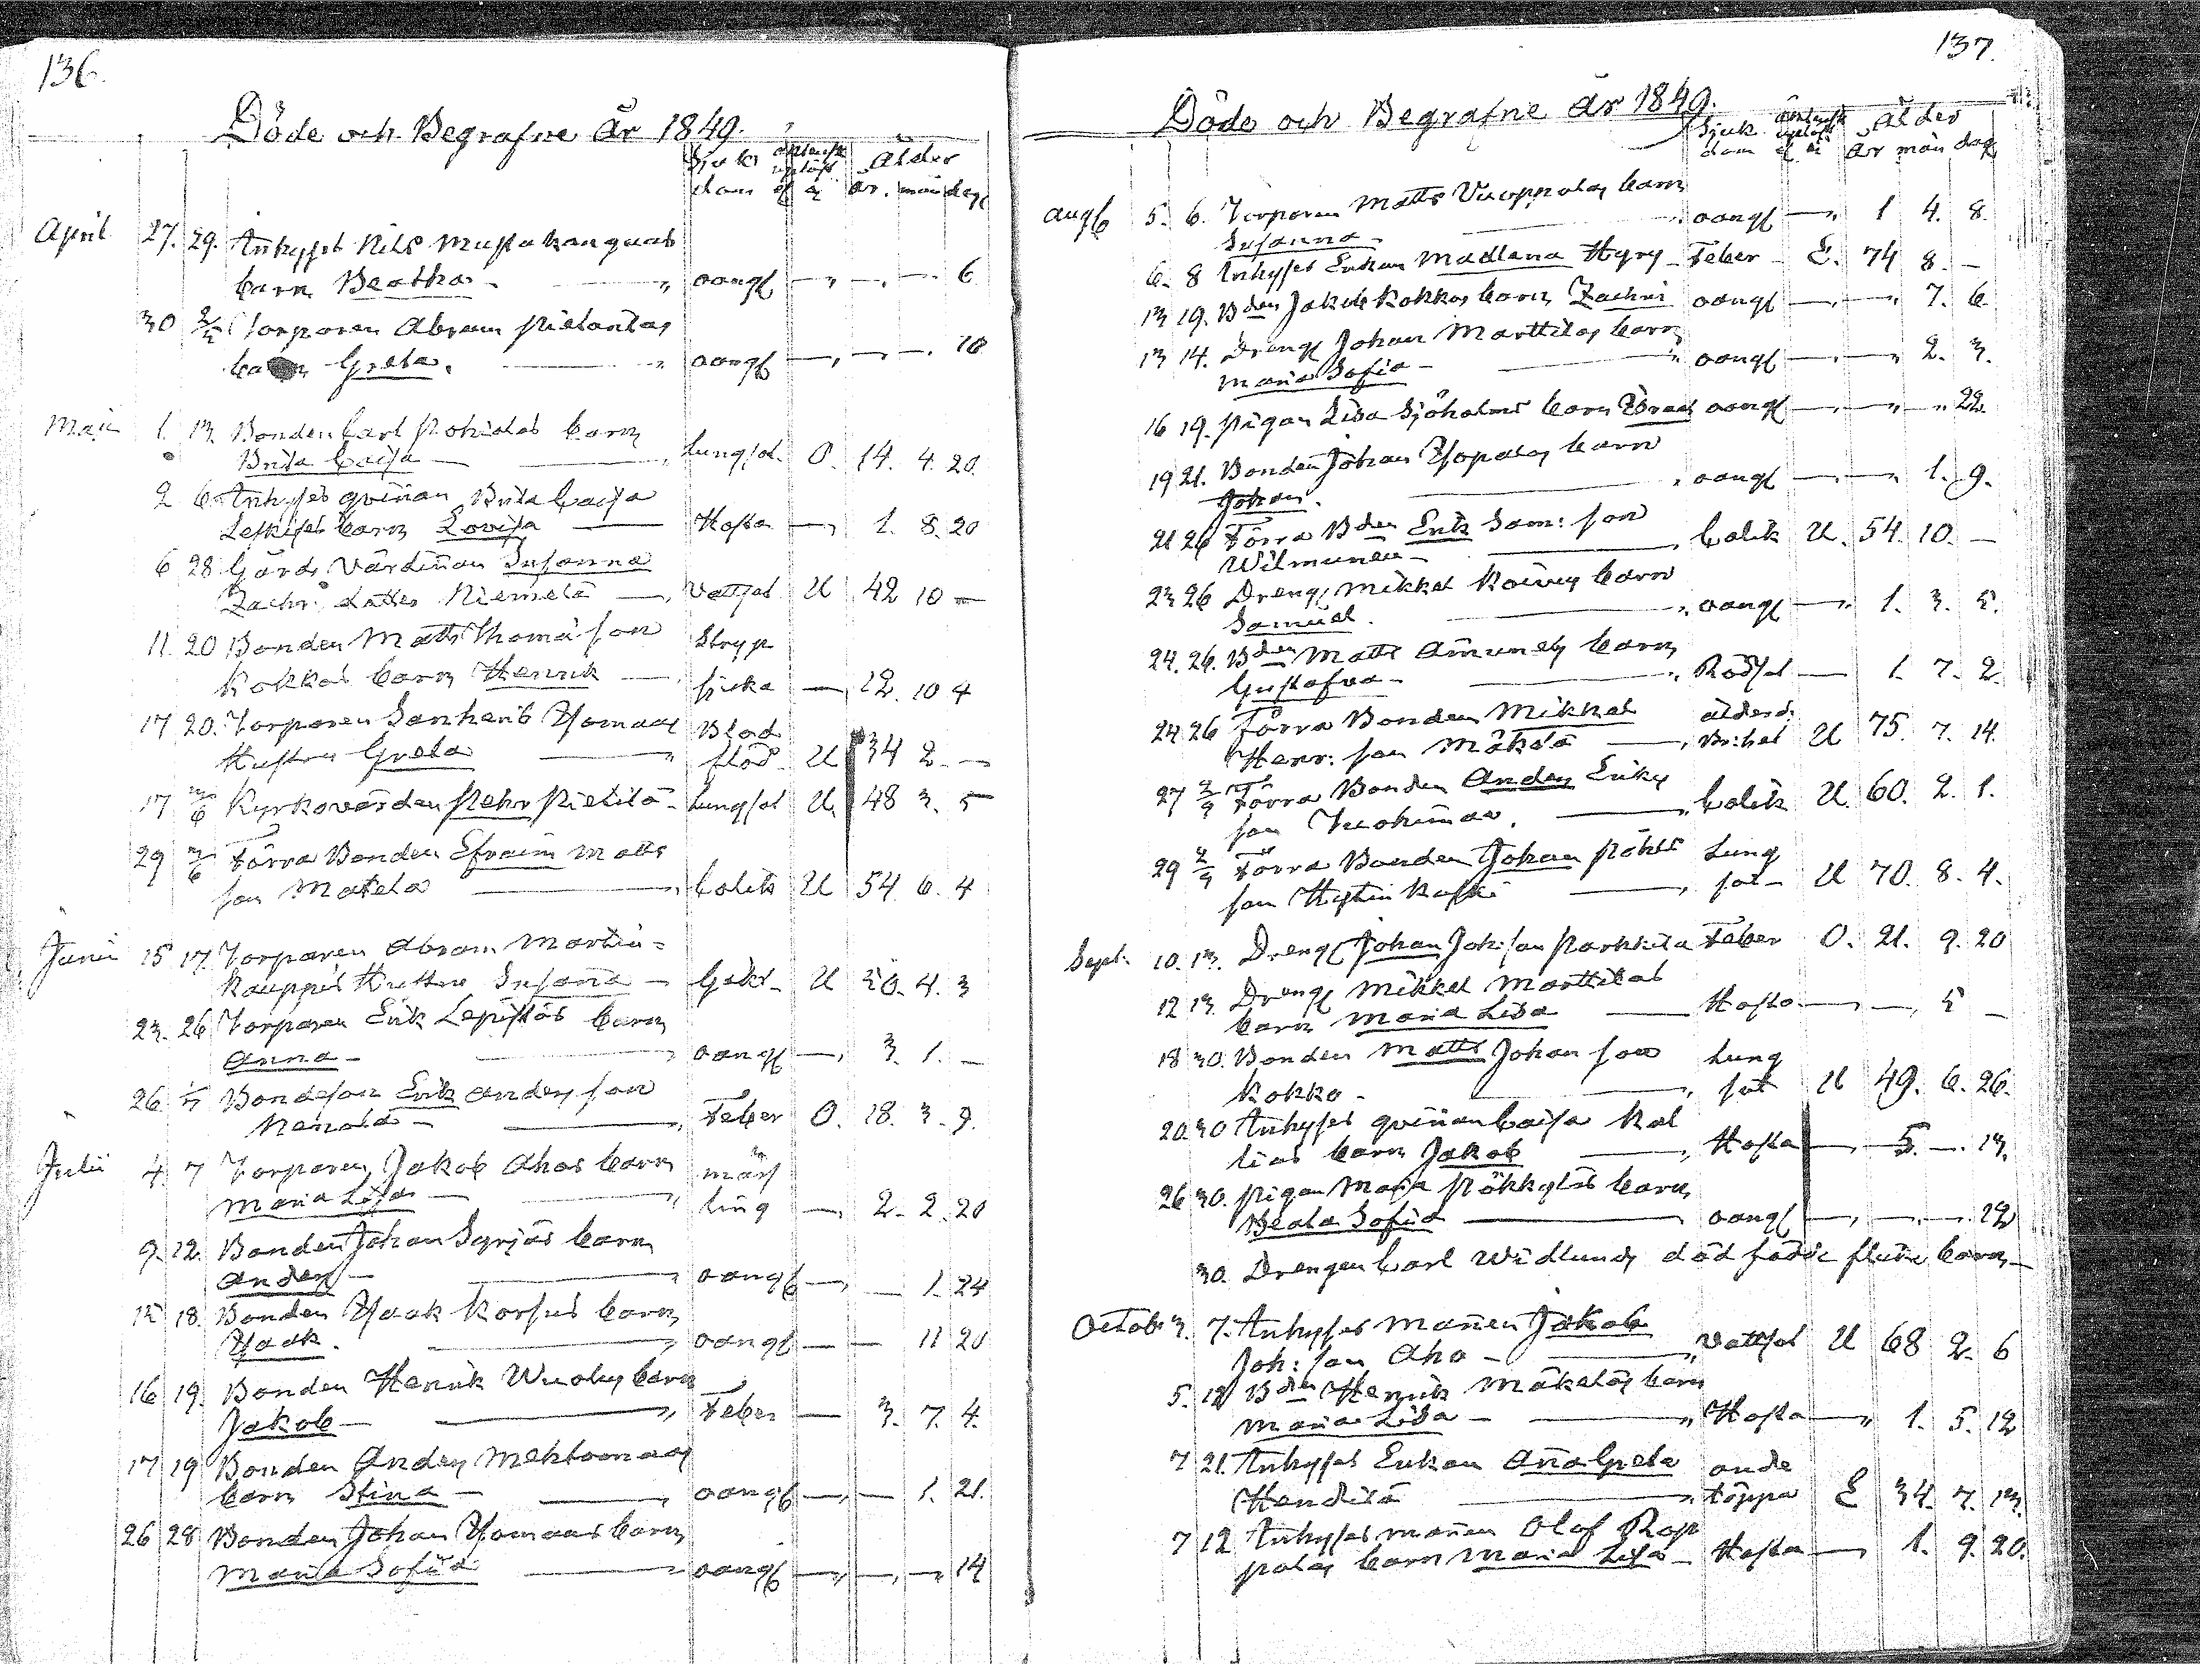 136.
Döde och Begrafne År 1849.
Sjuk
dom
Ålder
år. mån dag
April 27. 29. Inhyses Nils Mustakangas
barn Beatha — " oangf —" —" — 6
30 2/5 Torparen Abram Pietontas
barn Greta. — " oangf — — — 10
Maii 1. 13. Bonden Carl barn
Brita Caisa — lungsot. O. 14. 4. 20.
2 6 Inhyses qvinnan Brita Caisa
barn Lovisa — Hosta — 1. 8. 20
6 28 Gårds Värdinnan Susanna
Zachr. dotter Niemelä — Vattsot U 42 10 —
11. 20 Bonden Matts Thomæ son
Kokkos barn Henrik — Stryp
sjuka — 12. 10 4
17 20. Torparen
Hustru Greta — Blod
flöd U 34 2 —
17 3/6 Kyrkovärden Pehr Pietilä - Lungsot U. 48 3. 5
29 3/6 Förra Bonden Efraim Matts
son Matela — Colik U 54 6. 4
Junii 15 17. Torparen Abram Martin=
kauppis Hustru Susanna — U 30. 4. 3
23. 26 Torparen Erik Lepistös barn
Anna — oangf — 3. 1. —
26 1/7 Bondeson Erik Anders son
— Feber O. 18. 3. 9.
Julii 4 7 Torparen Jakob Ahos barn
Maria Lisa — mäs
ling — 2. 2. 20
9. 12. Bonden Johan Syrjäs barn
Anders — oangf — 1. 24
15 18. Bonden Isaak Korpis barn
Isaak. — oangf — — 11 20
16 19. Bonden Henrik barn
Jakob — Feber — 3. 7. 4.
17 19 Bonden Anders
barn Stina — oangf — — 1. 21.
26 28 Bonden Johan barn
Maria Sofia — oangf — — — 14
137.
Döde och Begrafne År 1849.
Sjuk
dom
Ålder
år mån dag
Augs 5. 6. Torparen Matts Vuoppalas barn
Susanna — oangf — 1 4. 8.
6. 8 Inhyses Enkan Madlena Hyry — Feber — E. 74 8. —
13 19. Bden Jakob Kokkos barn Zachri oangf — — 7. 6
13 14. Dreng Johan Marttilas barn
Maria Sofia — oangf — — 2. 3.
16 19. Pigan Lisa Sjöholms barn oangf — — — 22.
19 21. Bonden Johan barn
Johan. — oangf — — 1. 9.
21 26 Förra Bden Erik Sam: son
Wilmunen — Colik U. 54. 10. —
23 26 Dreng Mikkel Koivus barn
Samuel. — oangf — 1. 3. 5.
24. 26. Bden Matts barn
Gustafva — Rödsot — 1. 7. 2
24 26 Förra Bonden Mikkel
Henr: son Mäkelä — ålderd.
U 75. 7. 14.
27 2/9 Förra Bonden Anders Eriks
son — Colik U 60. 2. 1.
29 2/9 Förra Bonden Johan
son — Lung
sot — U 70. 8. 4.
Sept. 10. 13. Dreng Johan Joh: son Parkkila Feber O. 21. 9. 20
12 13. Dreng Mikkel Marttilas
barn Maria Lisa — Hosta — — 5 —
18 30. Bonden Matts Johan son
Kokko — Lung
sot U 49. 6. 26.
20 30 Inhyses qvinnan Caisa Kal
lias barn Jakob — Hosta — 5. — 13.
26 30. Pigan Maria barn
Beata Sofia — oangf — — — 12
30. Drengen Carl Widlunds död född barn —
Octob 3. 7. Inhyses mannen Jakob
Joh: son Aho — Vattsot U 68 2. 6
5. 12 Bden Henrik Mäkeläs barn
Maria Lisa — Hosta — 1. 5. 12
7 21. Inhyses Enkan Anna Greta
— ande
täppa E 34. 7. 13.
7 12 Inhyses mannen Olof Rop
polas barn Maria Lisa — Hosta — 1. 9. 20.